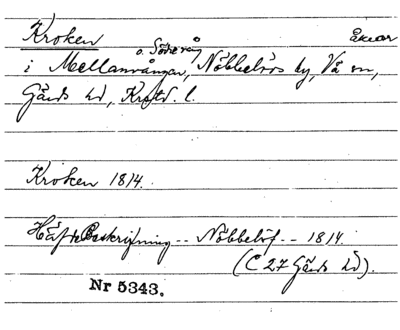 Kroken åkrar
o. Södervång
i Mellanvången, Nöbbelövs by, Vä sn,
Gärds hd, Krstd. l.
Kroken 1814.
Häfde Beskrifning -- Nöbbelöf -- 1814.
(C 27 Gärds hd).
Nr 5343.